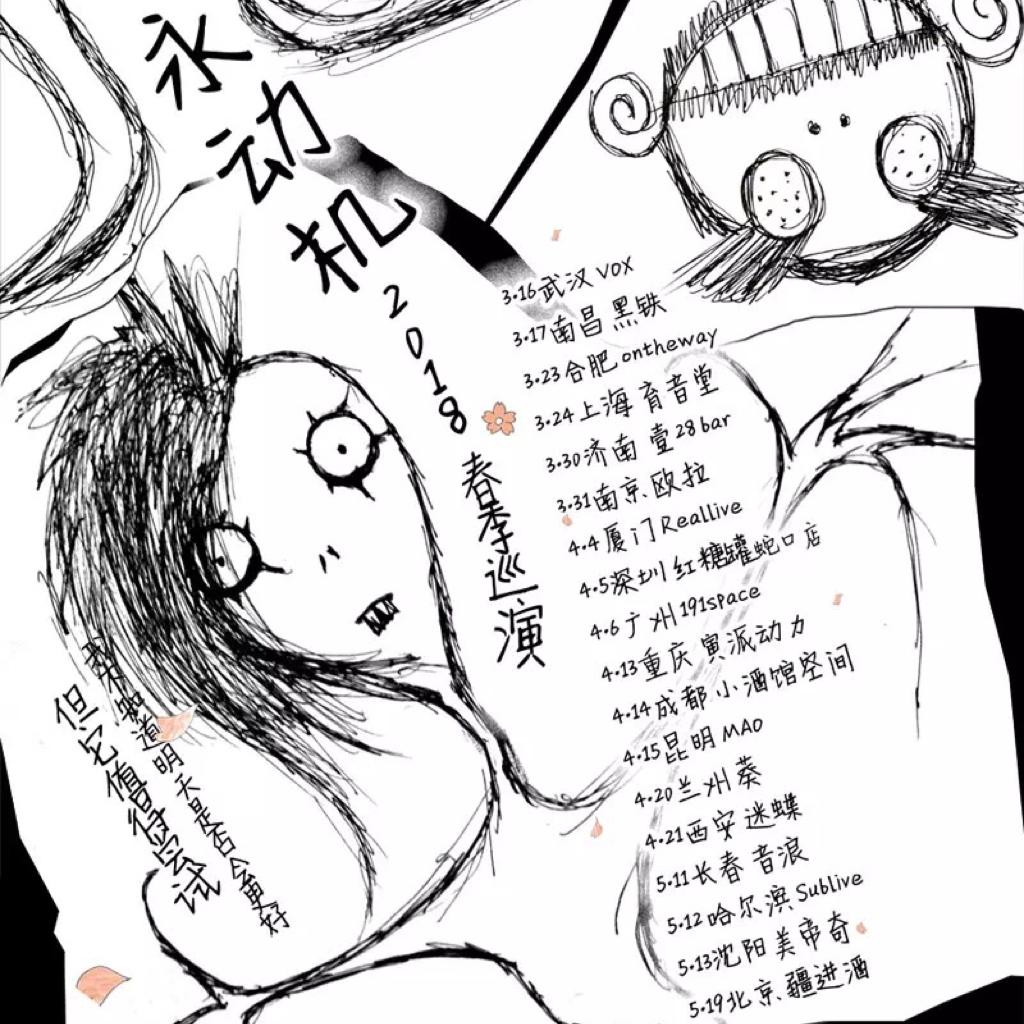 永动机
2018
春季巡演
3.16武汉 VOX
3.17南昌 黑铁
3.23合肥 ontheway
3.24上海 育音堂
3.30济南 壹28bar
3.31南京 欧拉
4.4厦门Reallive
4.5深圳 红糖罐蛇口店
4.6广州191space
4.13重庆 寅派动力
4.14成都 小酒馆空间
4.15昆明 MAO
4.20兰州 葵
4.21西安 迷蝶
5.11长春 音浪
5.12哈尔滨Sublive
5.13沈阳 美帝奇
5.19北京 疆进酒
我不知道明天是否会更好
但它值得尝试